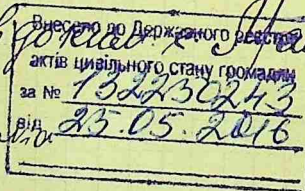 Внесено до Державного реєстру
актів цивільного стану громадян
за № 132230243
від 25.05.2016